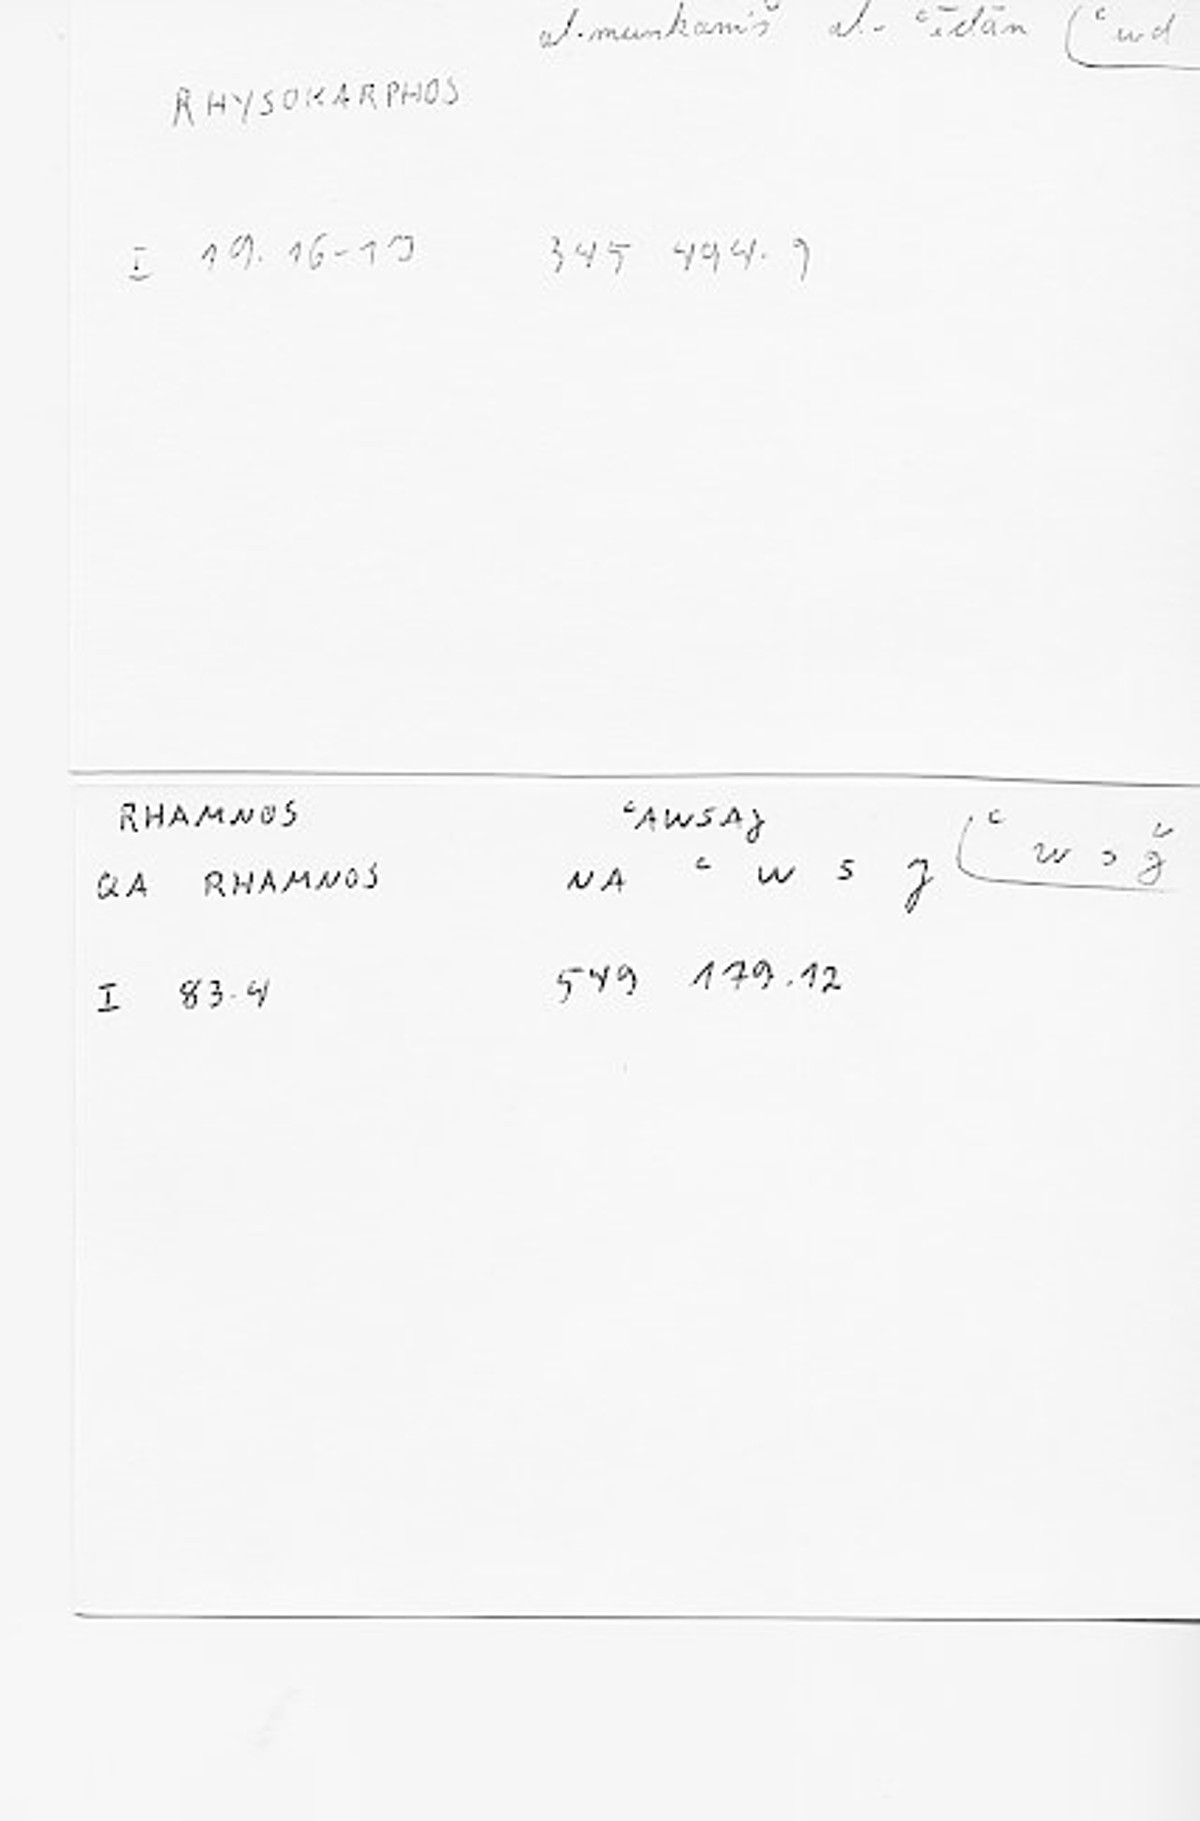 al-munkamiš al-ʿīdān (ʿwd
RHYSOKARPHOS
I 19.16-19 345 494.9
RHAMNOS ʿAWSAJ (ʿ w s ǧ
QA RHAMNOS NA ʿ w s J
I 83.4 549 179.12